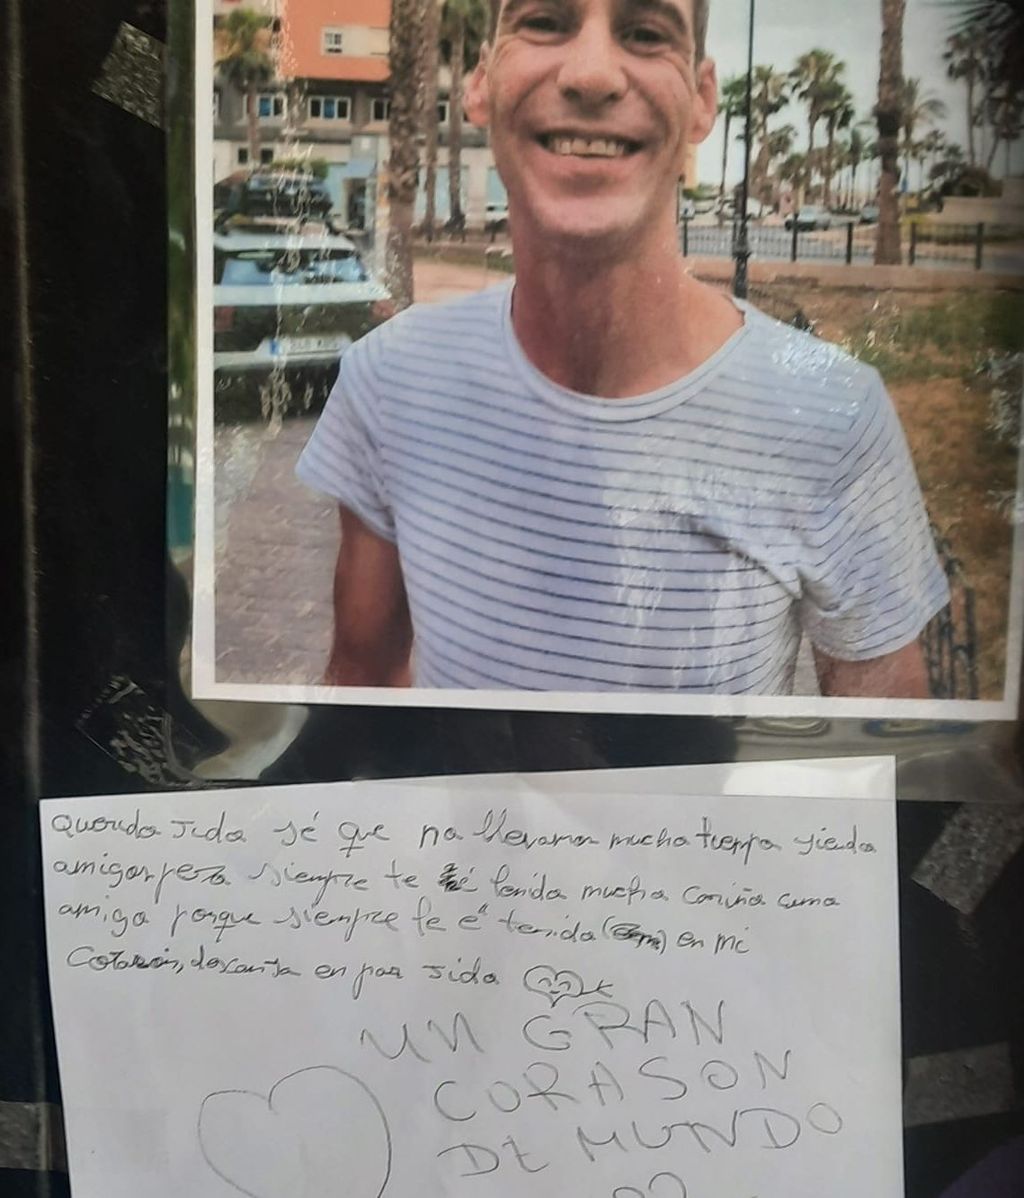 Querido Jido sé que no llevamos mucho tiempo siendo
amigos pero siempre te é tenido mucho cariño como
amigo porque siempre te é tenido en mi
Corazón, descansa en paz Jido
UN GRAN
CORASON
DE MUNDO